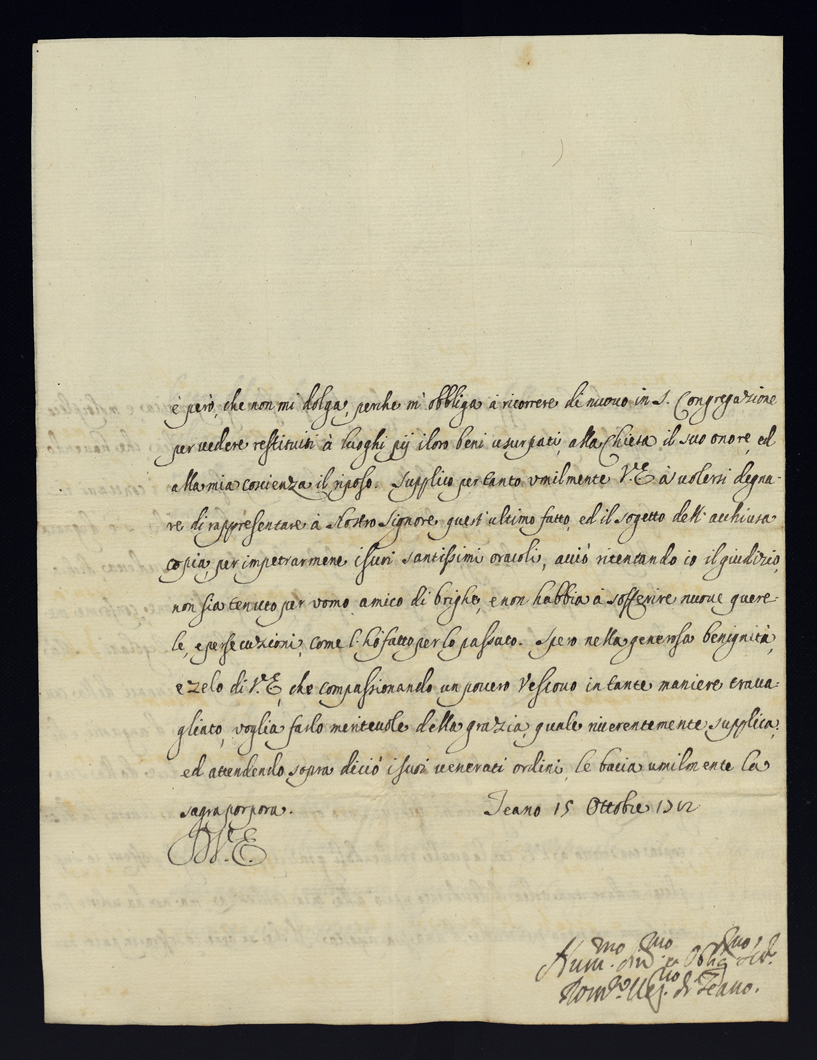 è però, che non mi dolga, perche m'obbliga à ricorrere di nuovo in S. Congregazione
per vedere restituiti à luoghi pij i loro beni usurpati, alla Chiesa il suo onore, ed
alla mia coscienza il riposo. Supplico per tanto umilmente V.E. à volersi degna-
re di rappresentare à Nostro Signore quest'ultimo fatto, ed il sogetto dell'acchiusa
copia, per impetrarmene i suoi santissimi oracoli, acciò ritentando io il giudizio,
non sia tenuto per uomo amico di brighe, e non habbia à sofferire nuove quere-
le, e persecuzioni, come l'hò fatto per lo passato. Spero nella generosa benignità,
e zelo di V.E., che compassionando un povero Vescovo in tante maniere trava-
gliato, voglia farlo meritevole della grazia, quale riverentemente supplica,
ed attendendo sopra di ciò i suoi venerati ordini, le bacia umilmente la
sagra porpora. Teano 15 Ottobre 1712
D.V.E.
Hum.mo Oblig.mo
Vesc.o di Teano.